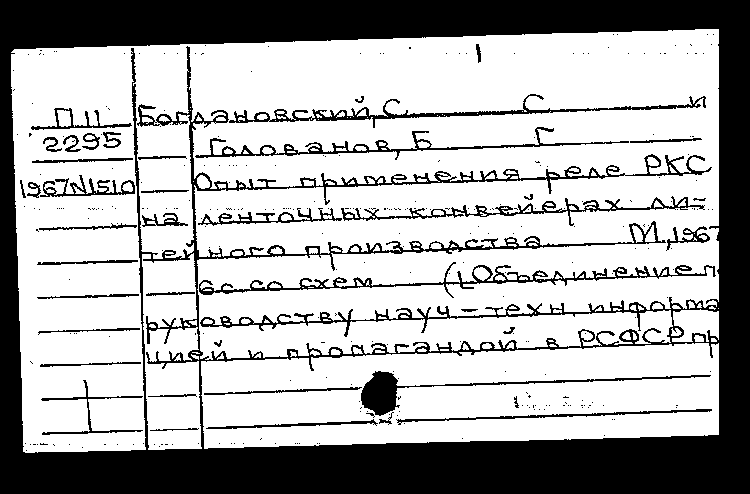 П 11 Богдановский, С С и
2295 Голованов, Б Г
1967N1510 Опыт применения реле РКС
на ленточных конвейерах ли-
тейного производства М, 1967
6с со схем (Объединение п
руководству науч-техн. информа
цией и пропагандой в РСФСР пр